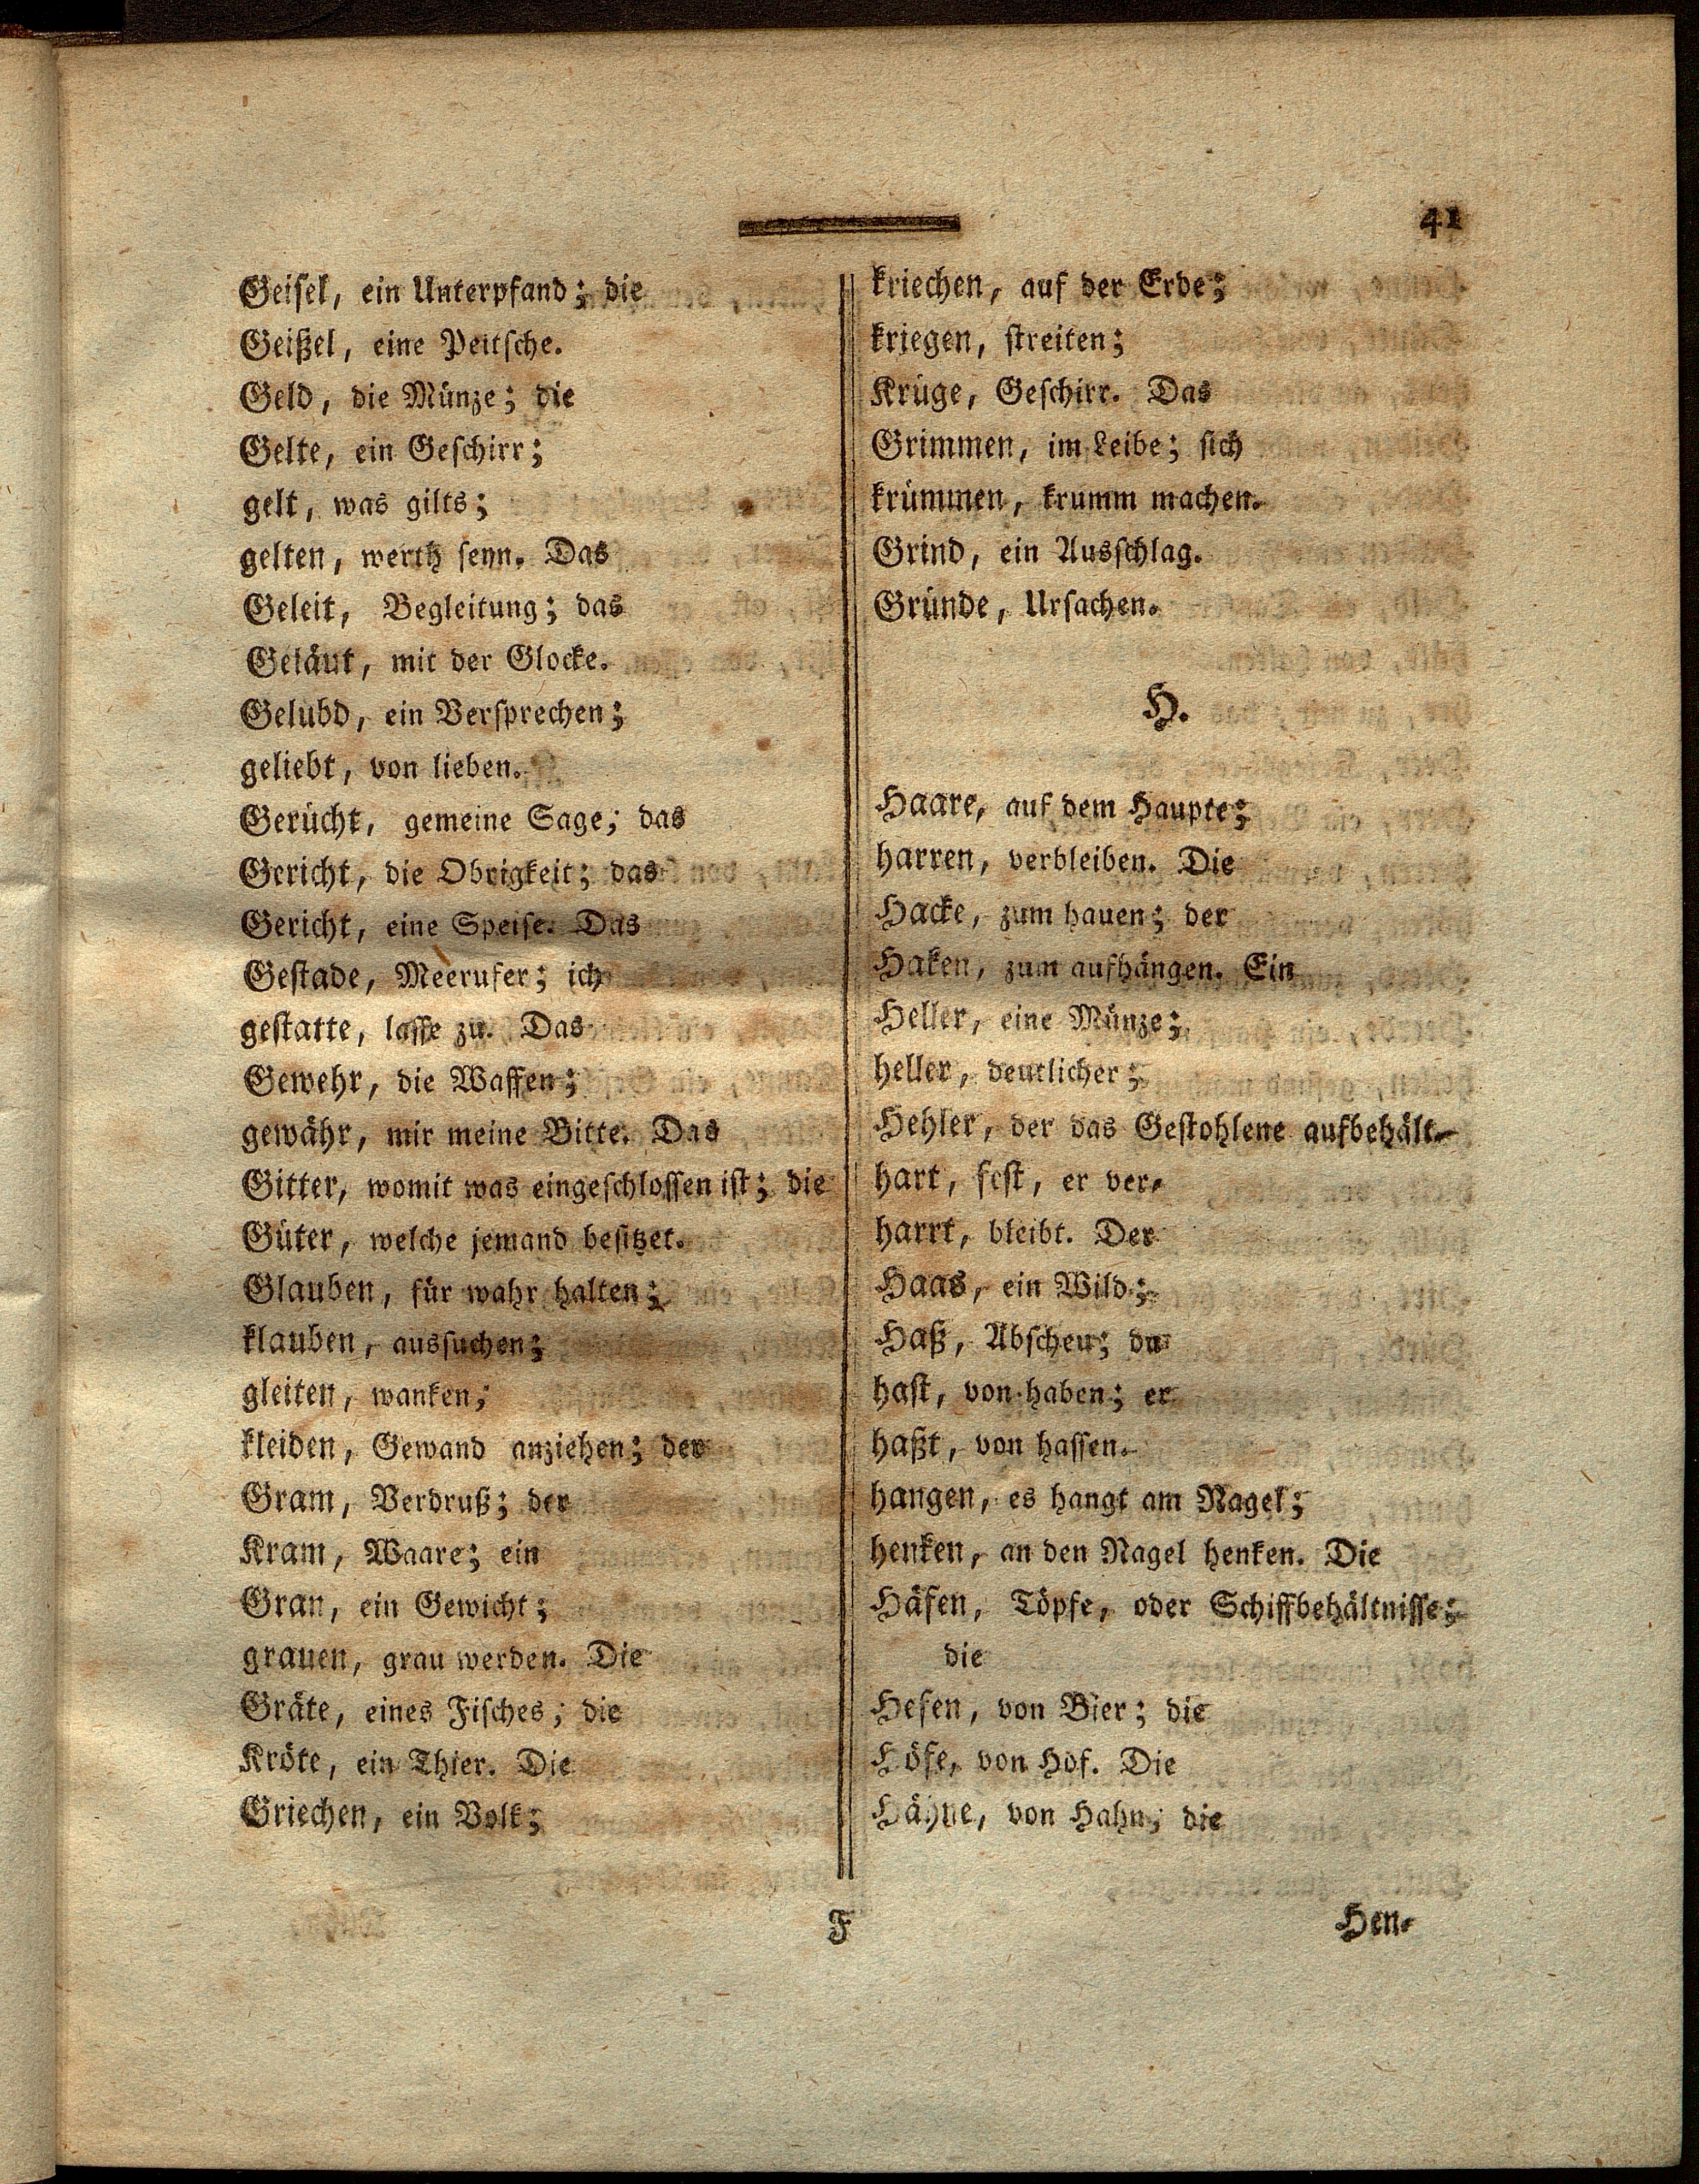 41
Geisel, ein Unterpfand; die
Geißel, eine Peitsche.
Geld, die Münze; die
Gelte, ein Geschirr;
gelt, was gilts;
gelten, werth seyn. Das
Geleit, Begleitung; das
Geläut, mit der Glocke.
Gelübd, ein Versprechen;
geliebt, von lieben.
Gerücht, gemeine Sage; das
Gericht, die Obrigkeit; das
Gericht, eine Speise. Das
Gestade, Meerufer; ich
gestatte, lasse zu. Das
Gewehr, die Waffen;
gewähr, mir meine Bitte. Das
Gitter, womit was eingeschlossen ist; die
Güter, welche jemand besitzet.
Glauben, für wahr halten;
klauben, aussuchen;
gleiten, wanken;
kleiden, Gewand anziehen; der
Gram, Verdruß; der
Kram, Waare; ein
Gran, ein Gewicht;
grauen, grau werden. Die
Gräte, eines Fisches; die
Kröte, ein Thier. Die
Griechen, ein Volk;
kriechen, auf der Erde;
kriegen, streiten;
Krüge, Geschirr. Das
Grimmen, im Leibe; sich
krümmen, krumm machen.
Grind, ein Ausschlag.
Gründe, Ursachen.
H.
Haare, auf dem Haupte;
harren, verbleiben. Die
Hacke, zum hauen; der
Haken, zum aufhängen. Ein
Heller, eine Münze;
heller, deutlicher;
Hehler, der das Gestohlene aufbehält.
hart, fest, er ver-
harrt, bleibt. Der
Haas, ein Wild;
Haß, Abscheu; du
hast, von haben; er
haßt, von hassen.
hangen, es hangt am Nagel;
henken, an den Nagel henken. Die
Häfen, Töpfe, oder Schiffbehältnisse;
die
Hefen, von Bier; die
Höfe, von Hof. Die
Hähne, von Hahn; die
F
Hen-